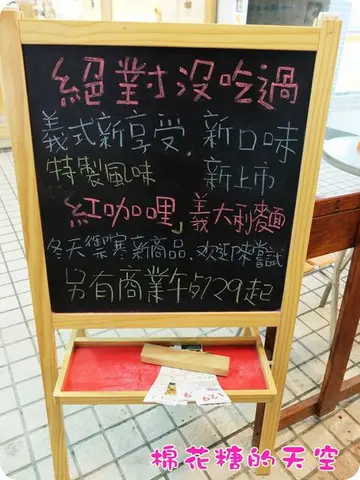 絕對沒吃過
義式新享受．新口味
特製風味 新上市
紅咖哩」義大利麵
冬天禦寒新商品．欢迎來嘗試
另有商業午$129起
棉花糖的天空